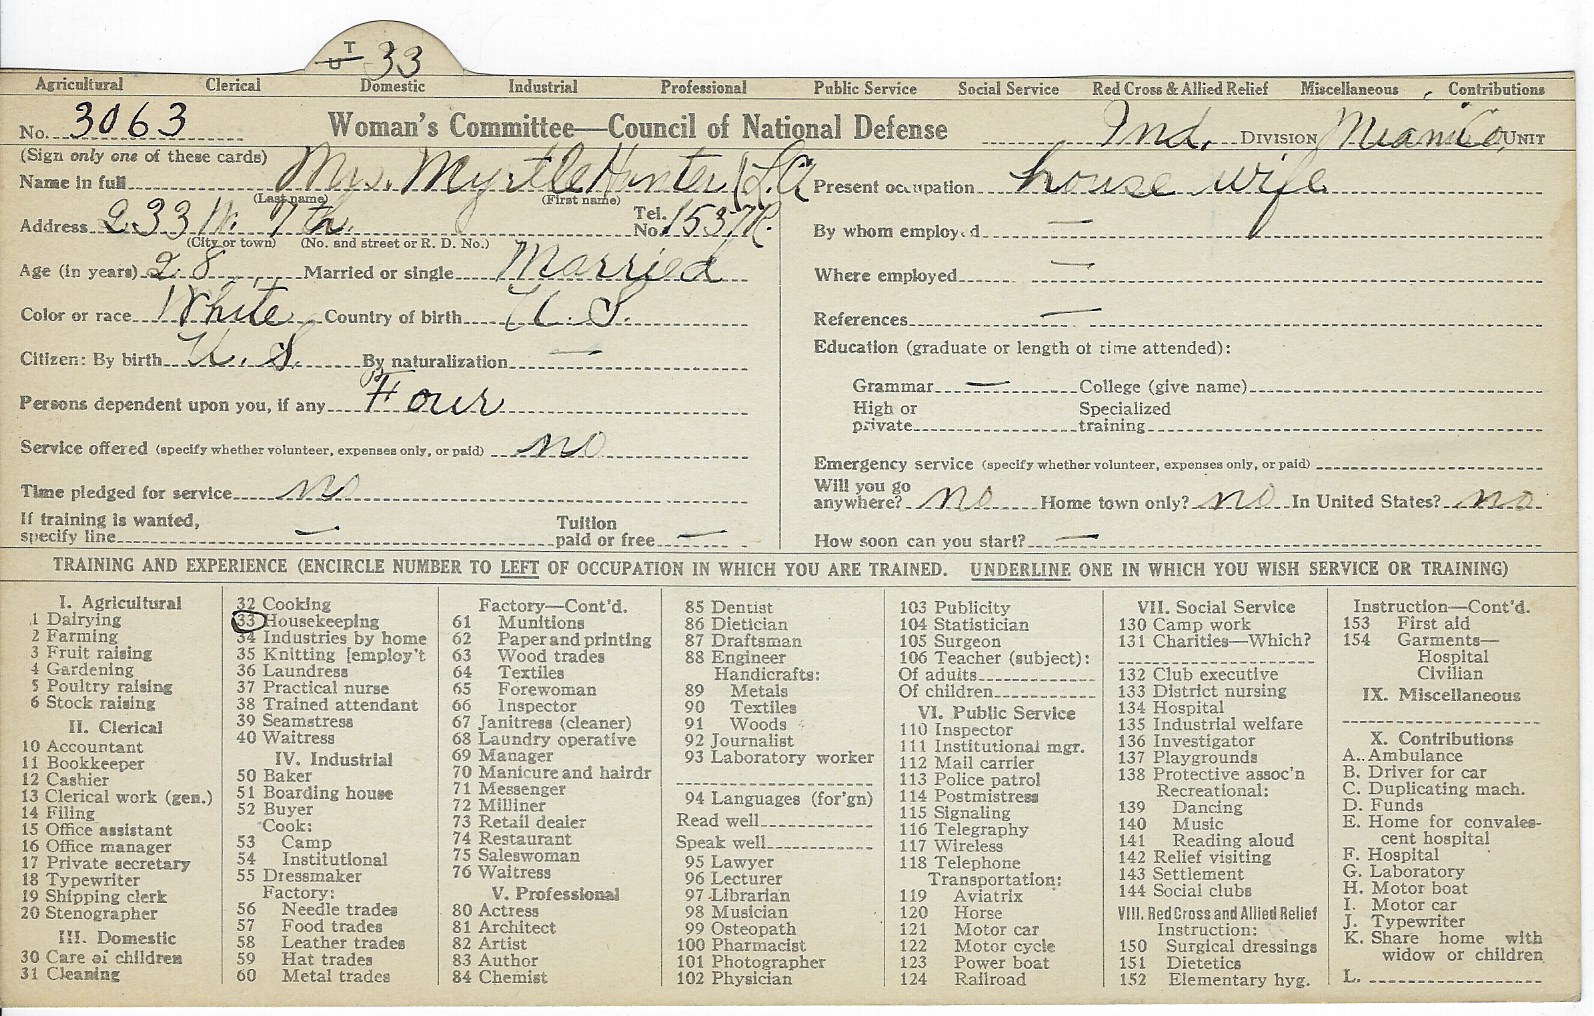 T
U 33
Agricultural Clerical Domestic Industrial Professional Public Service Social Service Red Cross & Allied Relief Miscellaneous Contributions
No. 3063 Woman's Committee—Council of National Defense Ind. DIVISION Miami Co. UNIT
(Sign only one of these cards)
Name in full Mrs. Myrtle Hunter (L.A
(Last name) (First name)
Address 233 W. 7th. Tel. No. 1537R.
(City or town) (No. and street or R. D. No.)
Age (in years) 28 Married or single Married
Color or race White Country of birth U. S.
Citizen: By birth U. S. By naturalization —
Persons dependent upon you, if any Four
Service offered (specify whether volunteer, expenses only, or paid) no
Time pledged for service no
If training is wanted,
specify line — Tuition
paid or free —
Present occupation house wife
By whom employed —
Where employed —
References —
Education (graduate or length of time attended):
Grammar — College (give name)
High or
private Specialized
training
Emergency service (specify whether volunteer, expenses only, or paid)
Will you go
anywhere? no Home town only? no In United States? no
How soon can you start? —
TRAINING AND EXPERIENCE (ENCIRCLE NUMBER TO LEFT OF OCCUPATION IN WHICH YOU ARE TRAINED. UNDERLINE ONE IN WHICH YOU WISH SERVICE OR TRAINING)
I. Agricultural
1 Dairying
2 Farming
3 Fruit raising
4 Gardening
5 Poultry raising
6 Stock raising
II. Clerical
10 Accountant
11 Bookkeeper
12 Cashier
13 Clerical work (gen.)
14 Filing
15 Office assistant
16 Office manager
17 Private secretary
18 Typewriter
19 Shipping clerk
20 Stenographer
III. Domestic
30 Care of children
31 Cleaning
32 Cooking
33 Housekeeping
34 Industries by home
35 Knitting [employ't
36 Laundress
37 Practical nurse
38 Trained attendant
39 Seamstress
40 Waitress
IV. Industrial
50 Baker
51 Boarding house
52 Buyer
Cook:
53 Camp
54 Institutional
55 Dressmaker
Factory:
56 Needle trades
57 Food trades
58 Leather trades
59 Hat trades
60 Metal trades
Factory—Cont'd.
61 Munitions
62 Paper and printing
63 Wood trades
64 Textiles
65 Forewoman
66 Inspector
67 Janitress (cleaner)
68 Laundry operative
69 Manager
70 Manicure and hairdr
71 Messenger
72 Milliner
73 Retail dealer
74 Restaurant
75 Saleswoman
76 Waitress
V. Professional
80 Actress
81 Architect
82 Artist
83 Author
84 Chemist
85 Dentist
86 Dietician
87 Draftsman
88 Engineer
Handicrafts:
89 Metals
90 Textiles
91 Woods
92 Journalist
93 Laboratory worker
94 Languages (for'gn)
Read well
Speak well
95 Lawyer
96 Lecturer
97 Librarian
98 Musician
99 Osteopath
100 Pharmacist
101 Photographer
102 Physician
103 Publicity
104 Statistician
105 Surgeon
106 Teacher (subject):
Of adults
Of children
VI. Public Service
110 Inspector
111 Institutional mgr.
112 Mail carrier
113 Police patrol
114 Postmistress
115 Signaling
116 Telegraphy
117 Wireless
118 Telephone
Transportation:
119 Aviatrix
120 Horse
121 Motor car
122 Motor cycle
123 Power boat
124 Railroad
VII. Social Service
130 Camp work
131 Charities—Which?
132 Club executive
133 District nursing
134 Hospital
135 Industrial welfare
136 Investigator
137 Playgrounds
138 Protective assoc'n
Recreational:
139 Dancing
140 Music
141 Reading aloud
142 Relief visiting
143 Settlement
144 Social clubs
VIII. Red Cross and Allied Relief
Instruction:
150 Surgical dressings
151 Dietetics
152 Elementary hyg.
Instruction—Cont'd.
153 First aid
154 Garments—
Hospital
Civilian
IX. Miscellaneous
X. Contributions
A. Ambulance
B. Driver for car
C. Duplicating mach.
D. Funds
E. Home for convales-
cent hospital
F. Hospital
G. Laboratory
H. Motor boat
I. Motor car
J. Typewriter
K. Share home with
widow or children
L.